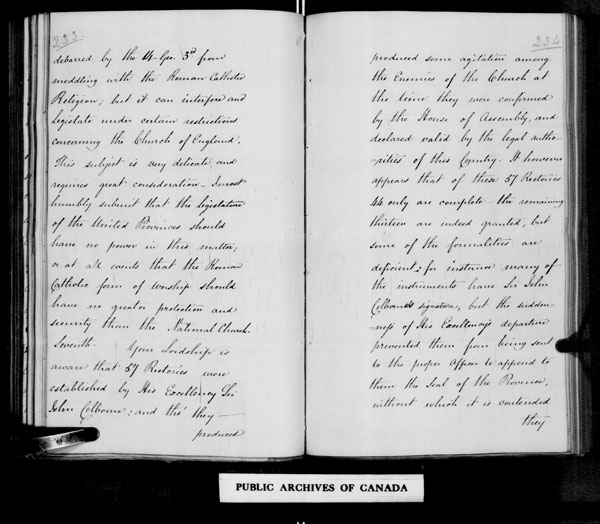 233.
debarred by the 14. Geo. 3d from
meddling with the Roman Catholic
Religion; but it can interfere and
Legislate under certain restrictions
concerning the Church of England.
This subject is very delicate, and
requires great consideration – I most
humbly submit that the Legislature
of the United Provinces should
have no power in this matter;
or at all events that the Roman
Catholic form of worship should
have no greater protection and
security than the National Church.
Seventh. Your Lordship is
aware that 57 Rectories were
established by His Excellency Sir
John Colborne; and tho' they —
produced
234
produced some agitation among
the Enemies of the Church at
the time they were confirmed
by the House of Assembly, and
declared valid by the legal autho-
rities of this Country. It however
appears that of these 57 Rectories
44 only are complete – the remaining
thirteen are indeed granted, but
some of the formalities are
deficient: for instance many of
the instruments have Sir John
Colborne's signature, but the sudden-
ness of His Excellency's departure
prevented them from being sent
to the proper Officer to append to
them the Seal of the Province,
without which it is contended
they
PUBLIC ARCHIVES OF CANADA